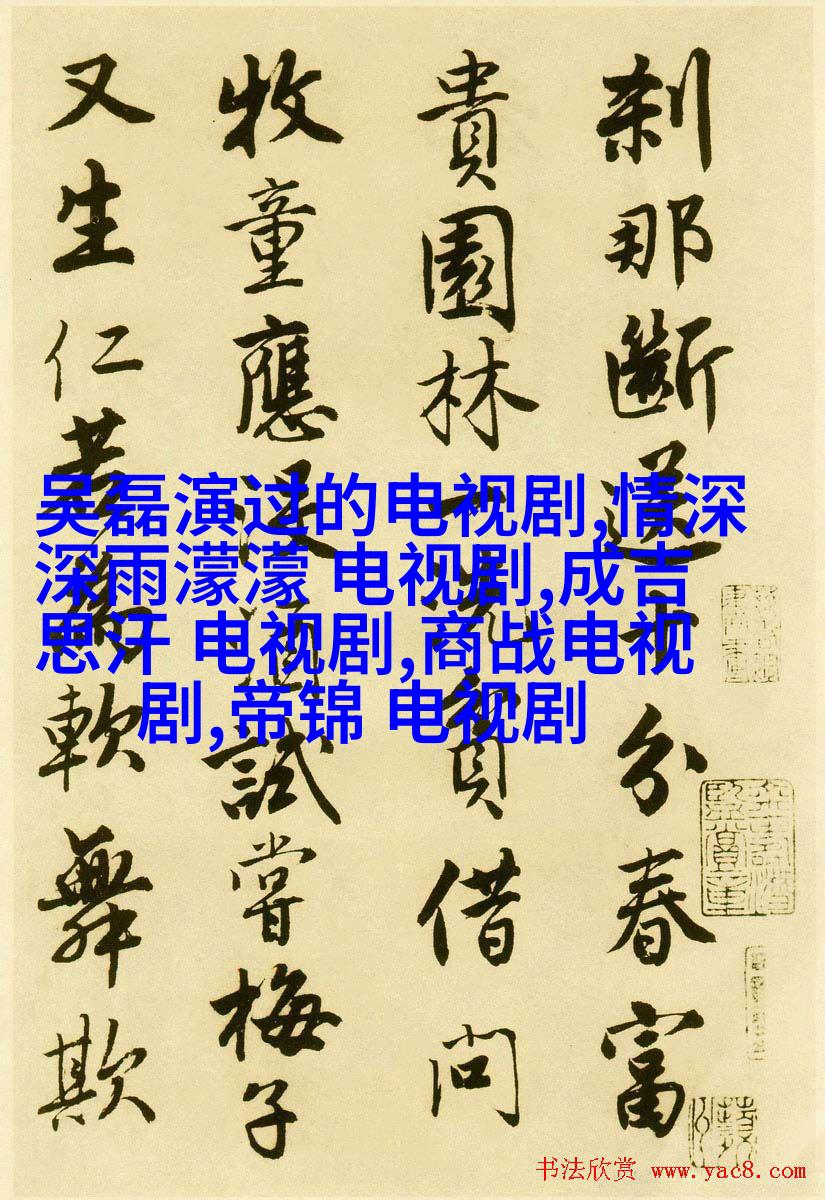 刹那斷送十分春富
貴園林一洗貧借問
牧童應没酒試嘗梅子
又生仁若為軟舞欺
吴磊演过的电视剧,情深
深雨濛濛 电视剧,成吉
思汗 电视剧,商战电视
剧,帝锦 电视剧
书法欣赏 www.yac8.com